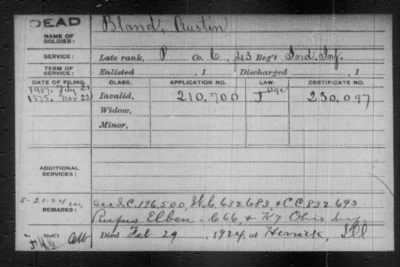 DEAD
NAME OF SOLDIER: Bland, Austin
SERVICE: Late rank, P Co. C, 43 Reg't Ind. Inf.
TERM OF SERVICE: Enlisted , 1 Discharged , 1
DATE OF FILING. CLASS. APPLICATION NO. LAW. CERTIFICATE NO.
1907. July
1875. Nov 22 Invalid, 210,700 J 230,097
Widow,
Minor,
ADDITIONAL SERVICES:
5-21-24
REMARKS: see I.C. 196,500, W.C. 632683, & C.C. 832693
Rufus C 66 & K 7 Ohio Inf
Died Feb 29, 1924, at Ill